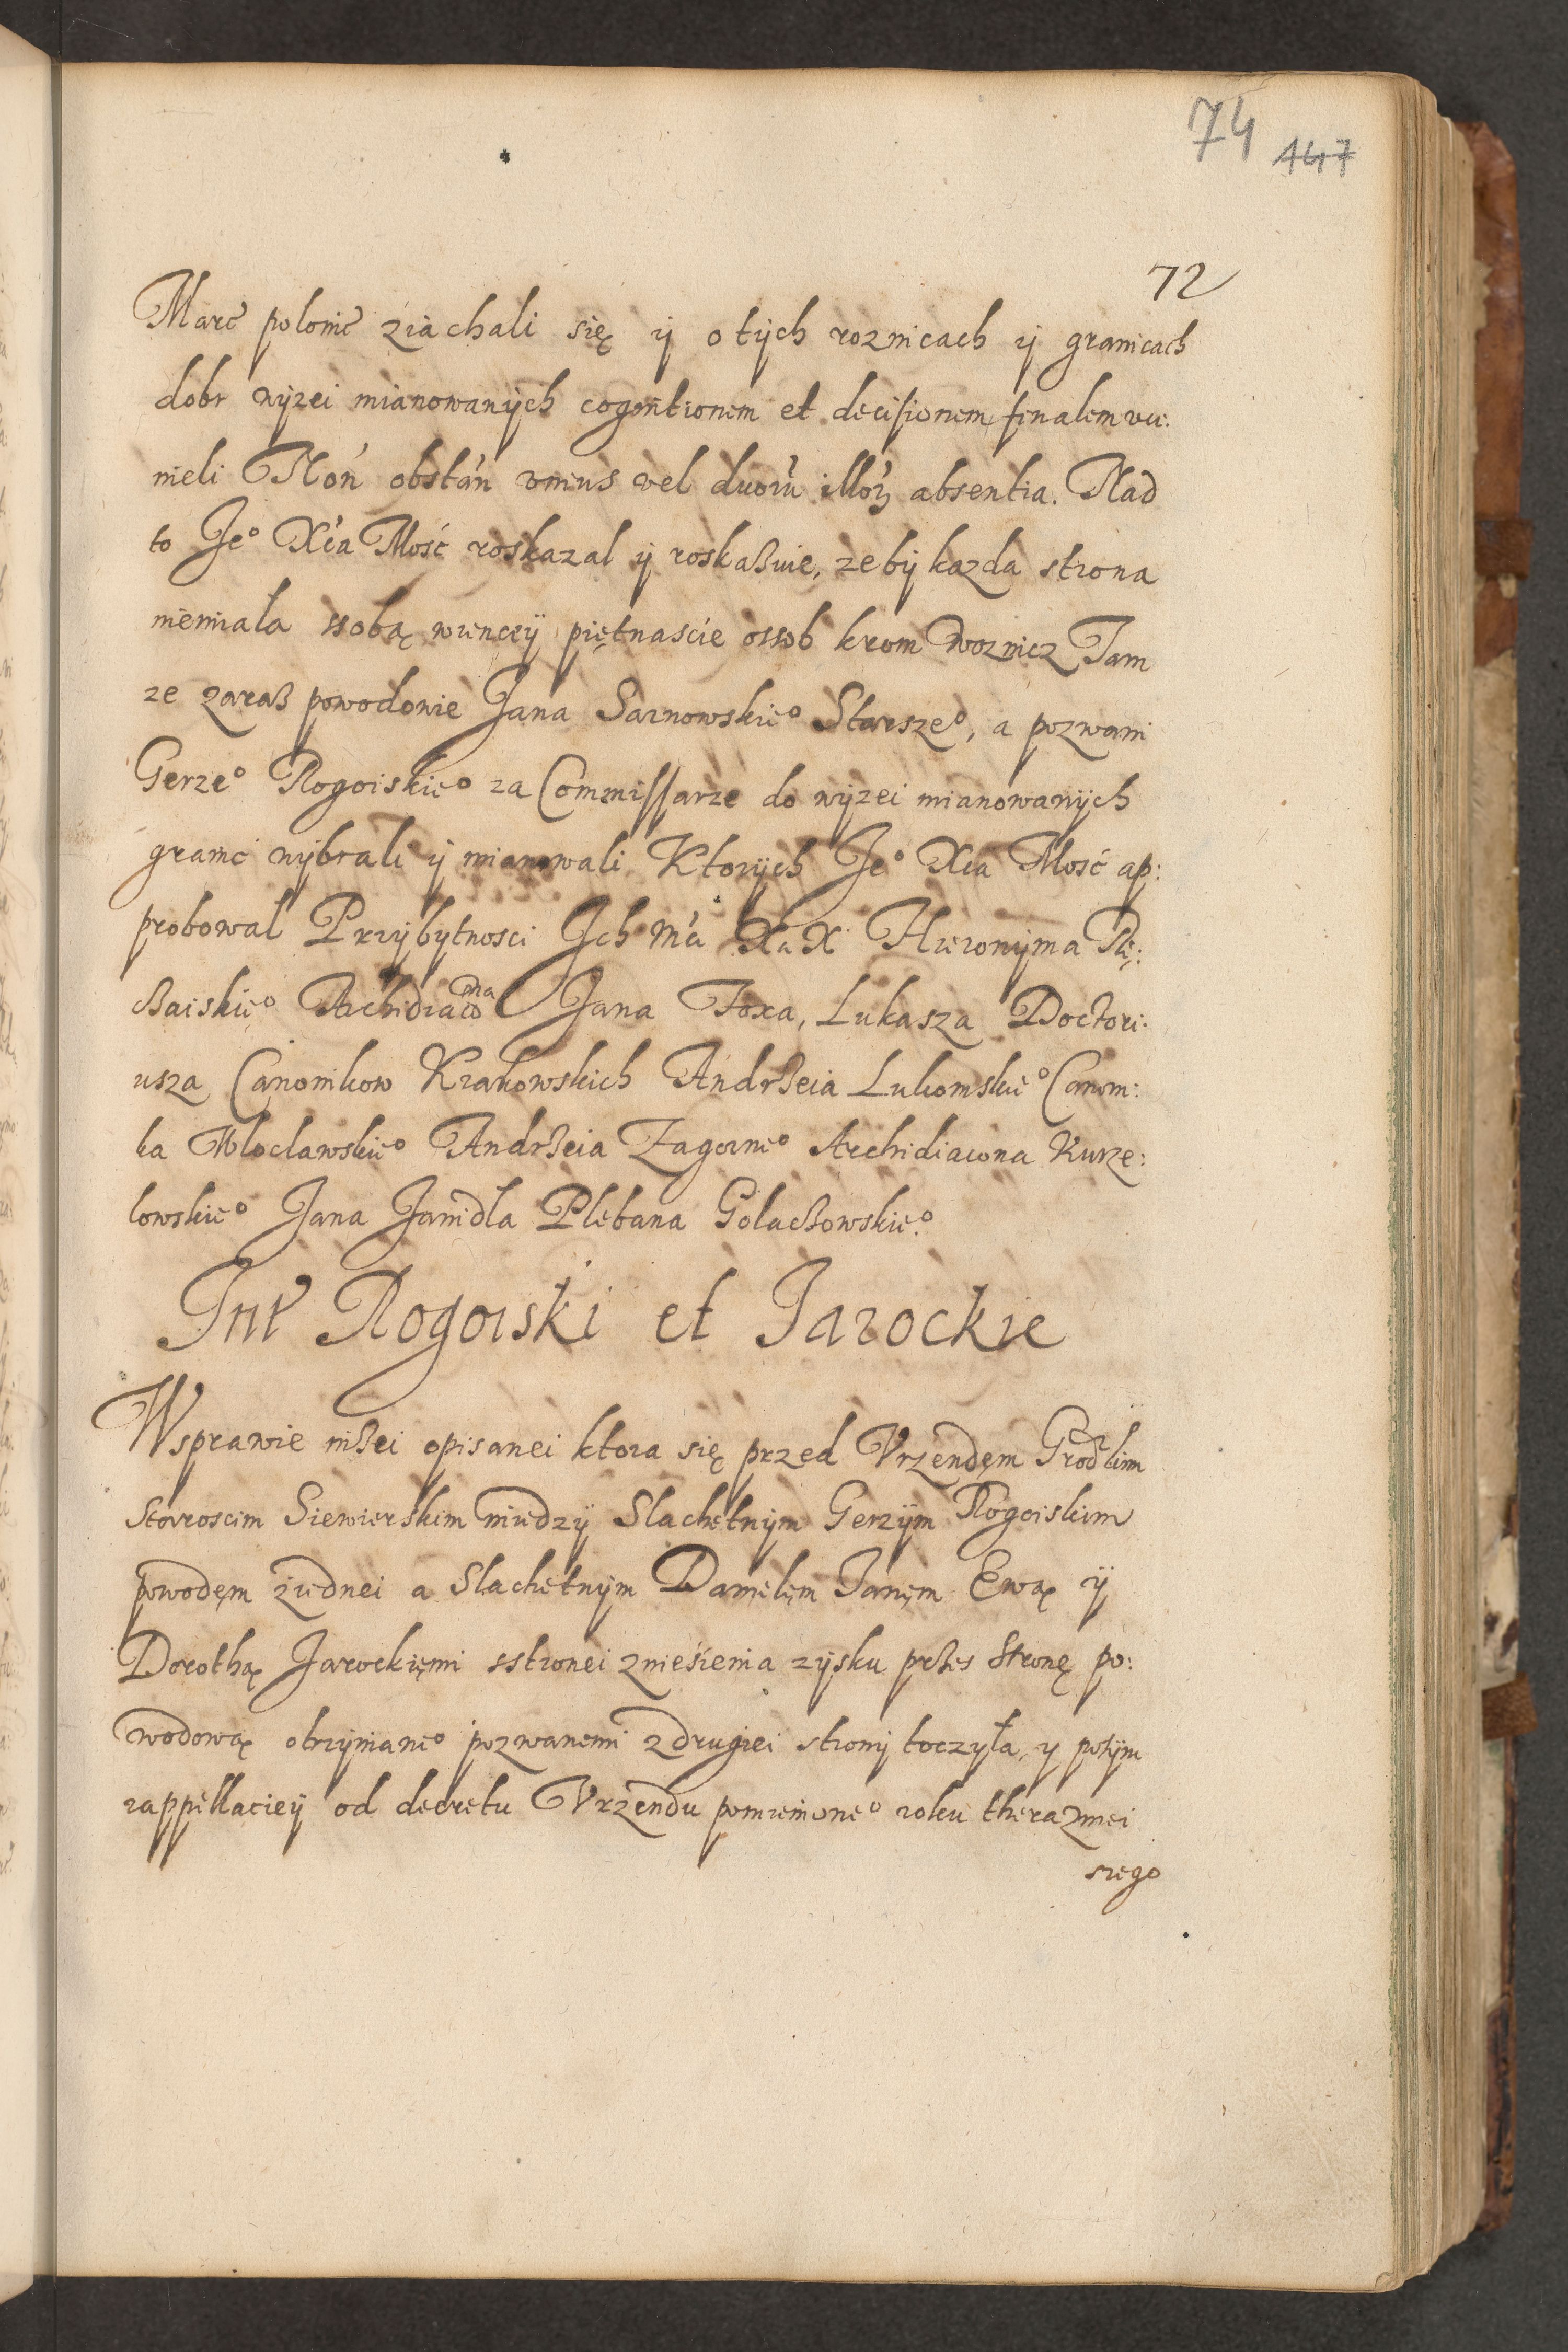 74 147
72
Marc̃ polonic̃ ziachali się ÿ o tÿch roznicach ÿ granicach
dobr wÿzei mianowanÿch cognitionem et decisionem finalem vcz:
nieli Non obstan̄ vnius vel duorū illorꝫ absentia. Nad
to Jeº Xc̃a Mość roskazal ÿ roskaßuie, zebÿ kazda strona
niemiala ssobą wiencÿ piętnascie ossob krom woznicz Tam
ze zaraß powodowie Jana Sarnowskieº Starszeº, a pozwani
Gerzeº Rogoiskieº za Commissarze do wÿzei mianowanÿch
granic wÿbrali ÿ mianowali Ktorÿch Jeº Xcia Mość ap:
probowal Przÿbytnosci Jch Mċi XaX Hieronÿma Po:
ßaiskieº Archidiacona Jana Foxa, Lukasza Doctori:
usza Canonikow Krakowskich Andrßeia Lukomskieº Canoni:
ka Wloclawskieº Andrßeia Zagornieº Archidiacona Kurze:
lowskieº Jana Janidla Plebana Golaczowskieº
Int̃ Rogoiski et Jarockie
Wsprawie nißei opisanei ktora się przed Vrzendęm Grodzkim
Staroscim Siewierskim miedzÿ Slachetnÿm Gerzÿm Rogoiskim
powodęm ziednei a Slachetnÿm Danielęm Janęm Ewą ÿ
Dorothą Jarockięmi sstronei zniesienia zÿsku przes Stronę po:
wodową otrzÿmanieº pozwanemi zdrugiei stronÿ toczyła, y potÿm
zappellaciey od decretu Vrzendu pomienioneº roku therazniei
szego